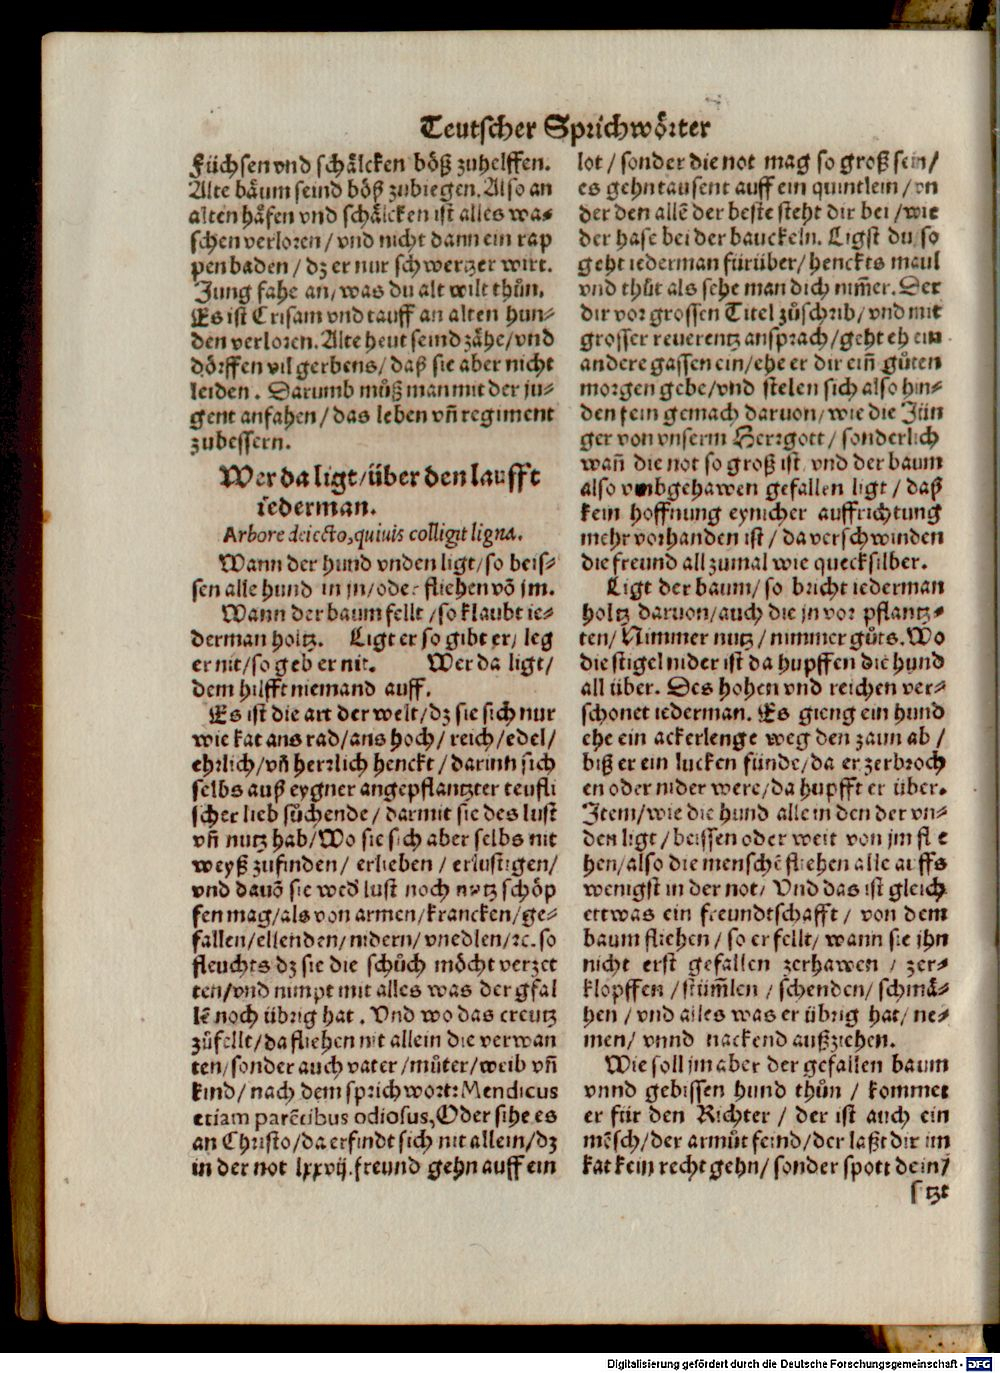 Teutscher Sprichwoͤrter
Füchsen vnd schaͤlcken boͤß zuhelffen.
Alte baͤum seind boͤß zubiegen. Also an
alten haͤfen vnd schaͤlcken ist alles wa-
schen verloren / vnd nicht dann ein rap
pen baden / dz er nur schwertzer wirt.
Jung fahe an / was du alt wilt thuͦn.
Es ist Crisam vnd tauff an alten hun-
den verloren. Alte heut seind zaͤhe / vnd
doͤrffen vil gerbens / daß sie aber nicht
leiden. Darumb muͦß man mit der ju-
gent anfahen / das leben vñ regiment
zubessern.
Wer da ligt / über den laufft
iederman.
Arbore deiecto, quiuis colligit ligna.
Wann der hund vnden ligt / so beis-
sen alle hund in jn / oder fliehen võ jm.
Wann der baum fellt / so klaubt ie-
derman holtz. Ligt er so gibt er / leg
er nit / so geb er nit. Wer da ligt /
dem hilfft niemand auff.
Es ist die art der welt / dz sie sich nur
wie kat ans rad / ans hoch / reich / edel /
ehrlich / vñ herrlich henckt / darinn sich
selbs auß eygner angepflantzter teufli
scher lieb suͦchende / darmit sie des lust
vñ nutz hab / Wo sie sich aber selbs nit
weyß zufinden / erlieben / erlustigen /
vnd dauõ sie wed' lust noch nutz schoͤp
fen mag / als von armen / krancken / ge-
fallen / ellenden / nidern / vnedlen / ꝛc. so
fleuchts dz sie die schuͦch moͤcht verzet
ten / vnd nimpt mit alles was der gfal
lẽ noch übrig hat. Vnd wo das creutz
zuͦfellt / da fliehen nit allein die verwan
ten / sonder auch vater / muͦter / weib vñ
kind / nach dem sprichwort: Mendicus
etiam parẽtibus odiosus, Oder sihe es
an Christo / da erfindt sich nit allein / dz
in der not lxxvij. freund gehn auff ein
lot / sonder die not mag so groß sein /
es gehn tausent auff ein quintlein / vn
der den allẽ der beste steht dir bei / wie
der hase bei der bauckeln. Ligst du so
geht iederman fürüber / henckts maul
vnd thuͦt als sehe man dich nim̃er. Der
dir vor grossen Titel zuͦschrib / vnd mit
grosser reuerentz ansprach / geht eh ein
andere gassen ein / ehe er dir ein̄ guͦten
morgen gebe / vnd stelen sich also hin-
den fein gemach daruon / wie die Jün
ger von vnserm Herrgott / sonderlich
wañ die not so groß ist vnd der baum
also vmbgehawen gefallen ligt / daß
kein hoffnung eynicher auffrichtung
mehr vorhanden ist / da verschwinden
die freund allzumal wie quecksilber.
Ligt der baum / so bricht iederman
holtz daruon / auch die jn vor pflantz-
ten / Nimmer nutz / nimmer guͦts. Wo
die stigel nider ist da hupffen die hund
all über. Des hohen vnd reichen ver-
schonet iederman. Es gieng ein hund
ehe ein ackerlenge weg den zaun ab /
biß er ein lucken fünde / da er zerbroch
en oder nider were / da hupfft er über.
Item / wie die hund allein den der vn-
den ligt / beissen oder weit von jm flie
hen / also die menschẽ fliehen alle auffs
wenigst in der not / Vnd das ist gleich
ettwas ein freundtschafft / von dem
baum fliehen / so er fellt / wann sie jhn
nicht erst gefallen zerhawen / zer-
klopffen / stüm̃len / schenden / schmaͤ-
hen / vnd alles was er übrig hat / ne-
men / vnnd nackend außziehen.
Wie soll jm aber der gefallen baum
vnnd gebissen hund thuͦn / kommet
er für den Richter / der ist auch ein
mẽsch / der armuͦt feind / der laßt dir im
kat kein recht gehn / sonder spott dein /
setzt
Digitalisierung gefördert durch die Deutsche Forschungsgemeinschaft - DFG